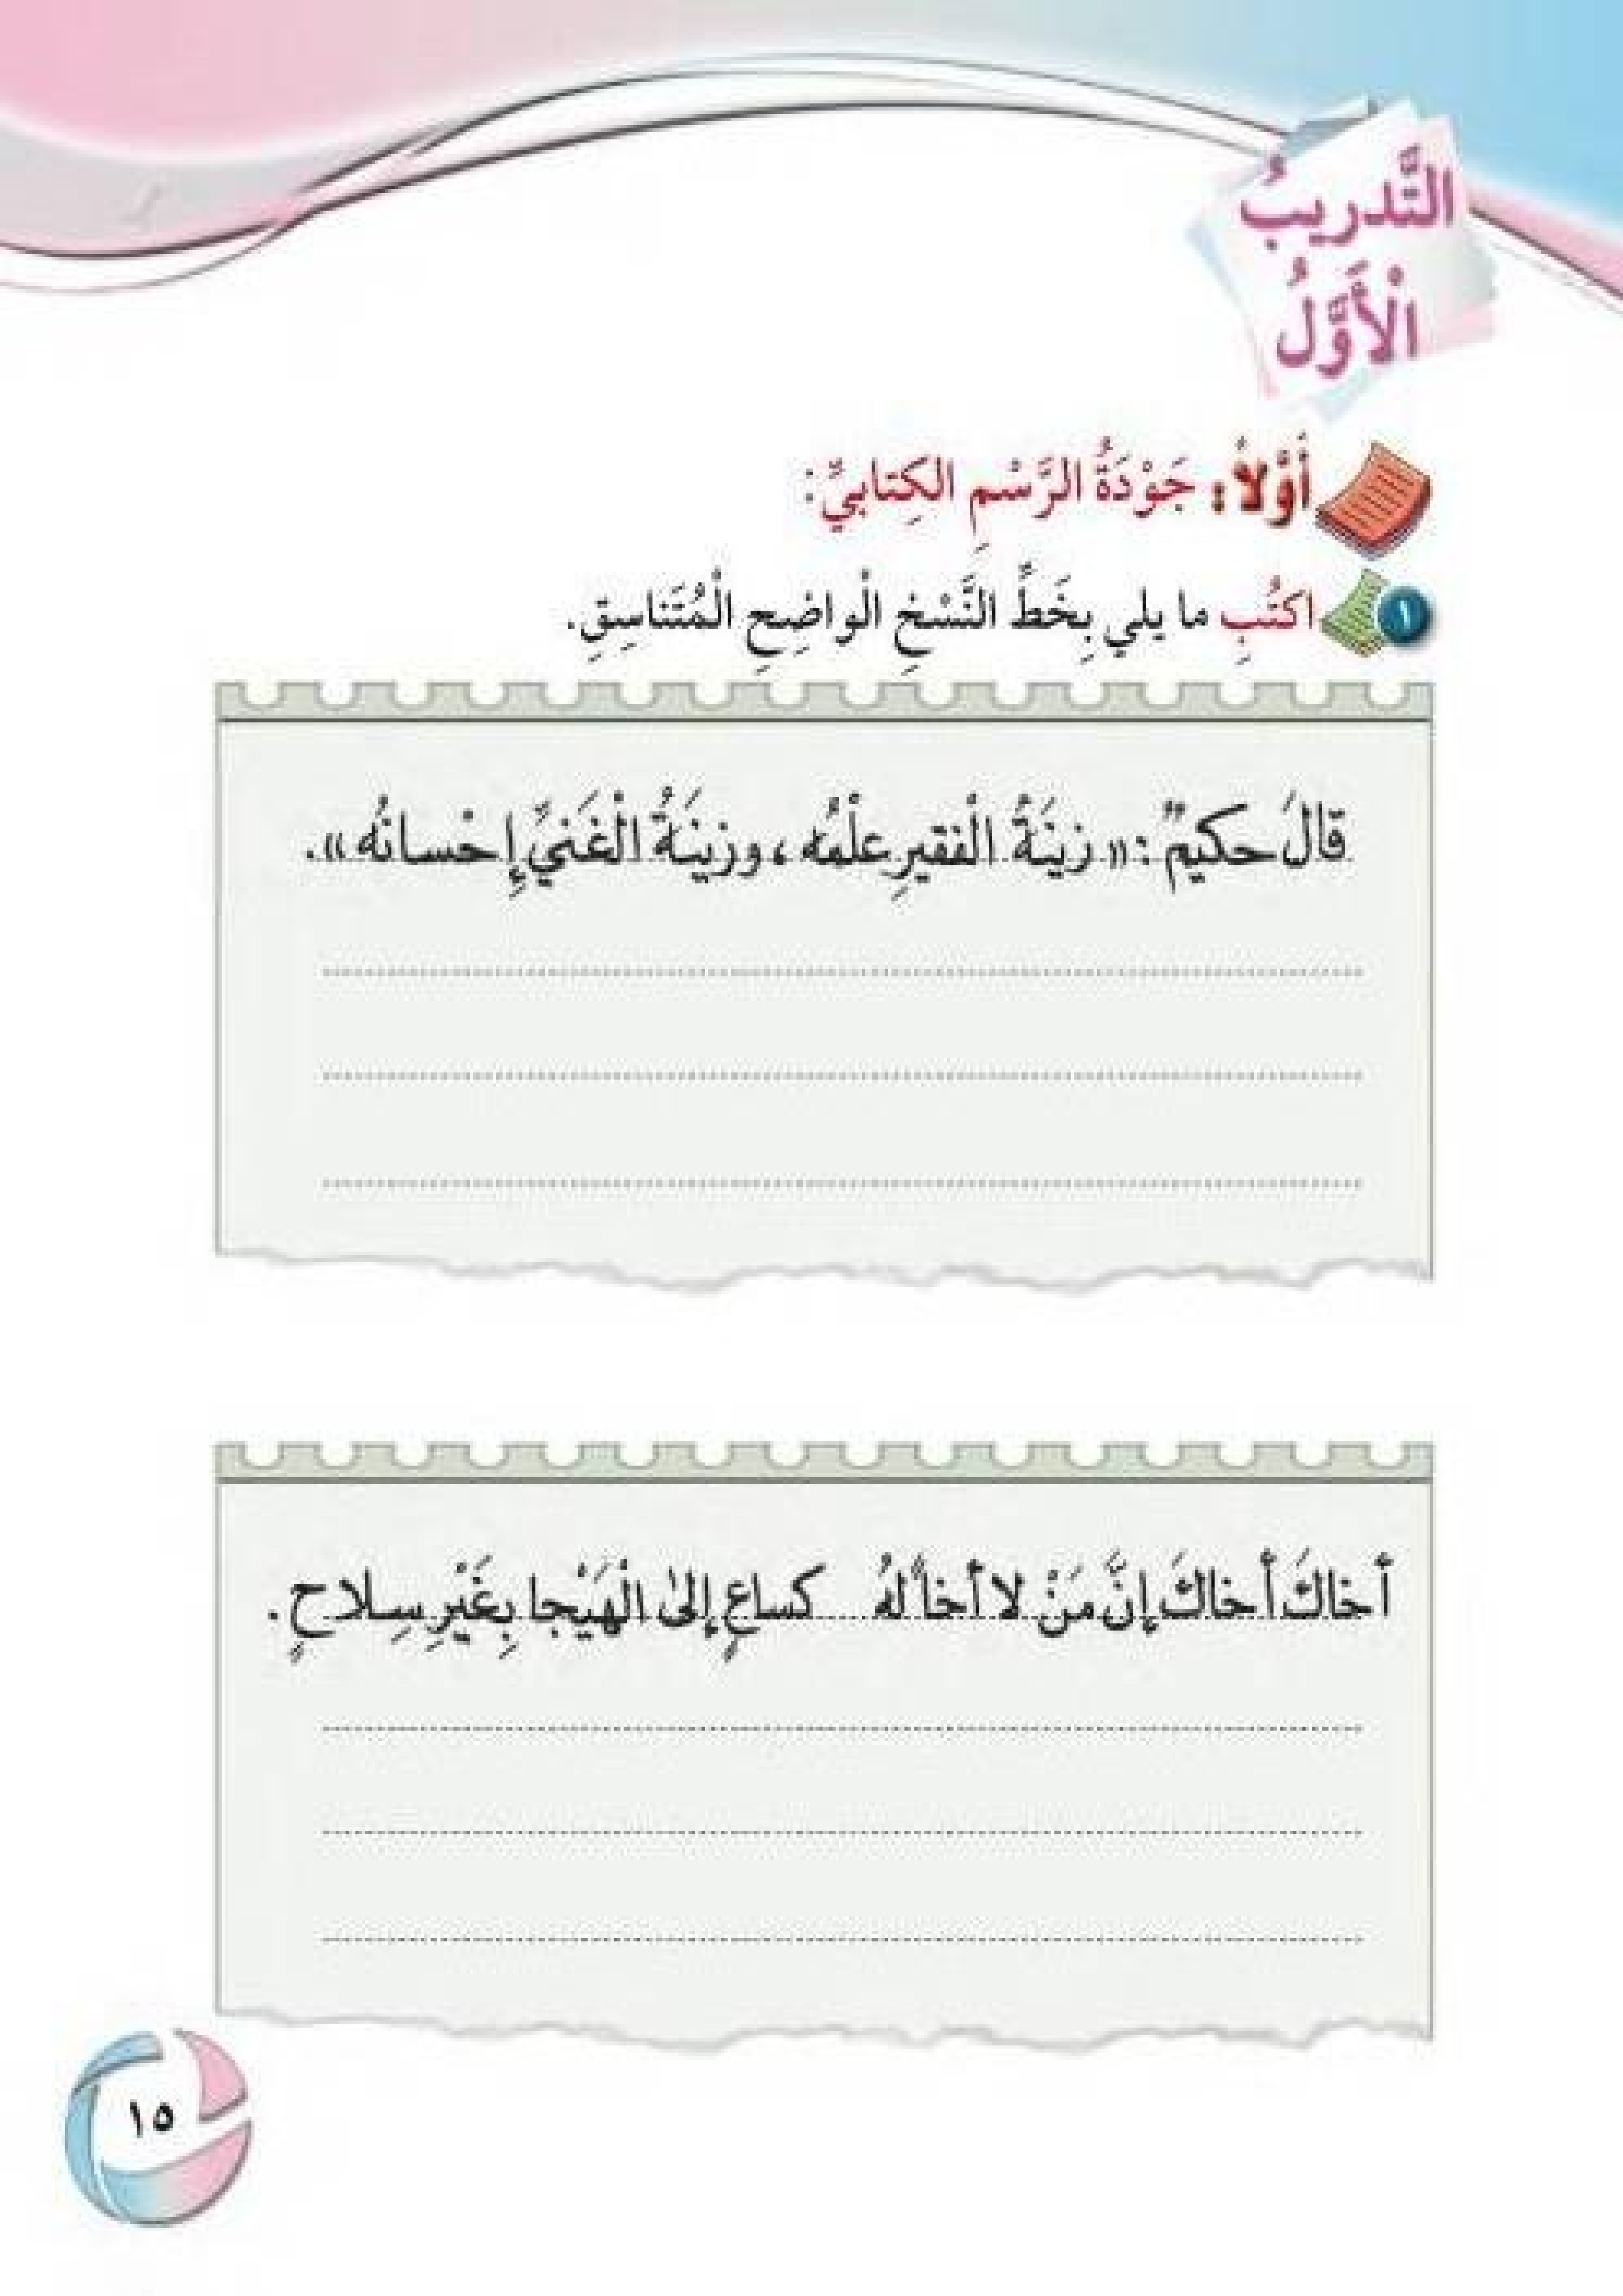 التَّدريبُ
الْأَوَّلُ
أوَّلاً: جَوْدَةُ الرَّسْمِ الكِتابيِّ:
١ اكتُبِ ما يلي بِخَطِّ النَّسْخِ الْواضِحِ الْمُتَناسِقِ.
قالَ حكيمٌ: «زينَةُ الْفقيرِ علْمُه، وزينَةُ الْغَنيِّ إِحْسانُه».
أخاكَ أَخاكَ إنَّ مَنْ لا أخاً لهُ كساعٍ إلىٰ الْهَيْجا بِغَيْرِ سِلاحٍ.
١٥